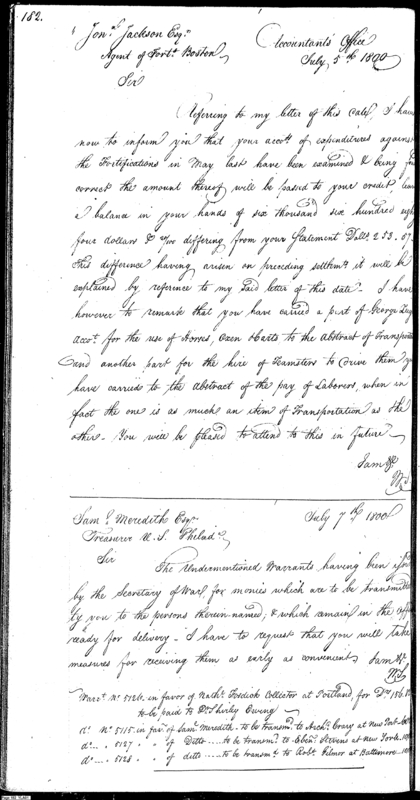 182.
Jonn. Jackson Esqr.
Accountants Office
Agent of Fortn. Boston
July, 5th 1800
Sir
Referring to my letter of this date, I have
now to inform you that your accots. of expenditures against
the Fortifications in May last have been examined & being
correct the amount thereof will be passed to your credit
a balance in your hands of six thousand six hundred
four dollars & differing from your Statement Dolls. 253.
This difference having arisen on preceding settlemt. it will be
explained by reference to my said letter of this date. I have
however to remark that you have carried a part of George
Accot. for the use of Horses, Oxen & Carts to the Abstract of
and another part for the hire of Teamsters to drive them
have carried to the Abstract of the pay of Laborers, when in
fact the one is as much an item of Transportation as the
other. You will be pleased to attend to this in future
I am &c.
Saml. Meredith Esqr.
July 7th 1800
Treasurer U.S. Philada.
Sir
The Undermentioned Warrants having been
by the Secretary of War, for monies which are to be
by you to the persons therein named, & which remain in the
ready for delivery. I have to request that you will take
measures for receiving them as early as convenient I am &c.
Warrt. No. 5126. in favor of Nathl. Fosdick Collector at Portland, for
to be paid to Dr. Shirley Ewing
do. No. 5115. in favr. of Saml. Meredith to be transmd. to Archd. Crary at New Port
do. .. 5127 .. of Ditto ..... to be transmd. to Ebenr. Stevens at New York
do. .. 5128 .. of ditto ..... to be transmd. to Robt. Gilmor at Baltimore